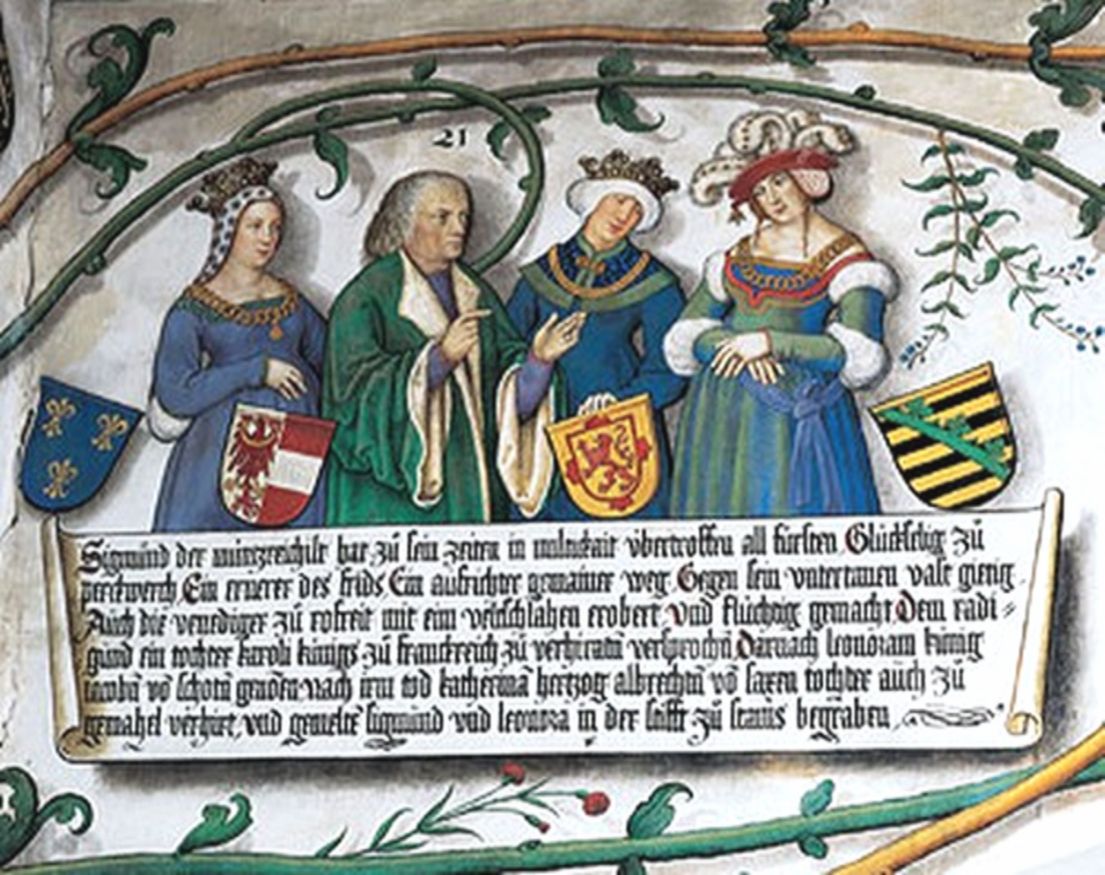 21
Sigmund der müntzreichist hat zů sein zeiten in miltikait übertroffen all fürsten Glückselig zů
perckwerch Ein ernerer des frids Ein aufrichter gemainer weg Gegen sein untertanen vast gietig
Auch die venediger zů rofreit mit ein veltschlahen erobert vnd flüchtig gemacht Dem radi=
gund ein tochter karoli künigs zů franckreich zů verhiratn versprochn Darnach leonoram künig
iacobn vō schotn genōen nach irm tod katherinā hertzog albrechtn vō saxen tochter auch zů
gemahel verhirt, vnd gemelte sigmund vnd leonora in der stifft zů stams begraben